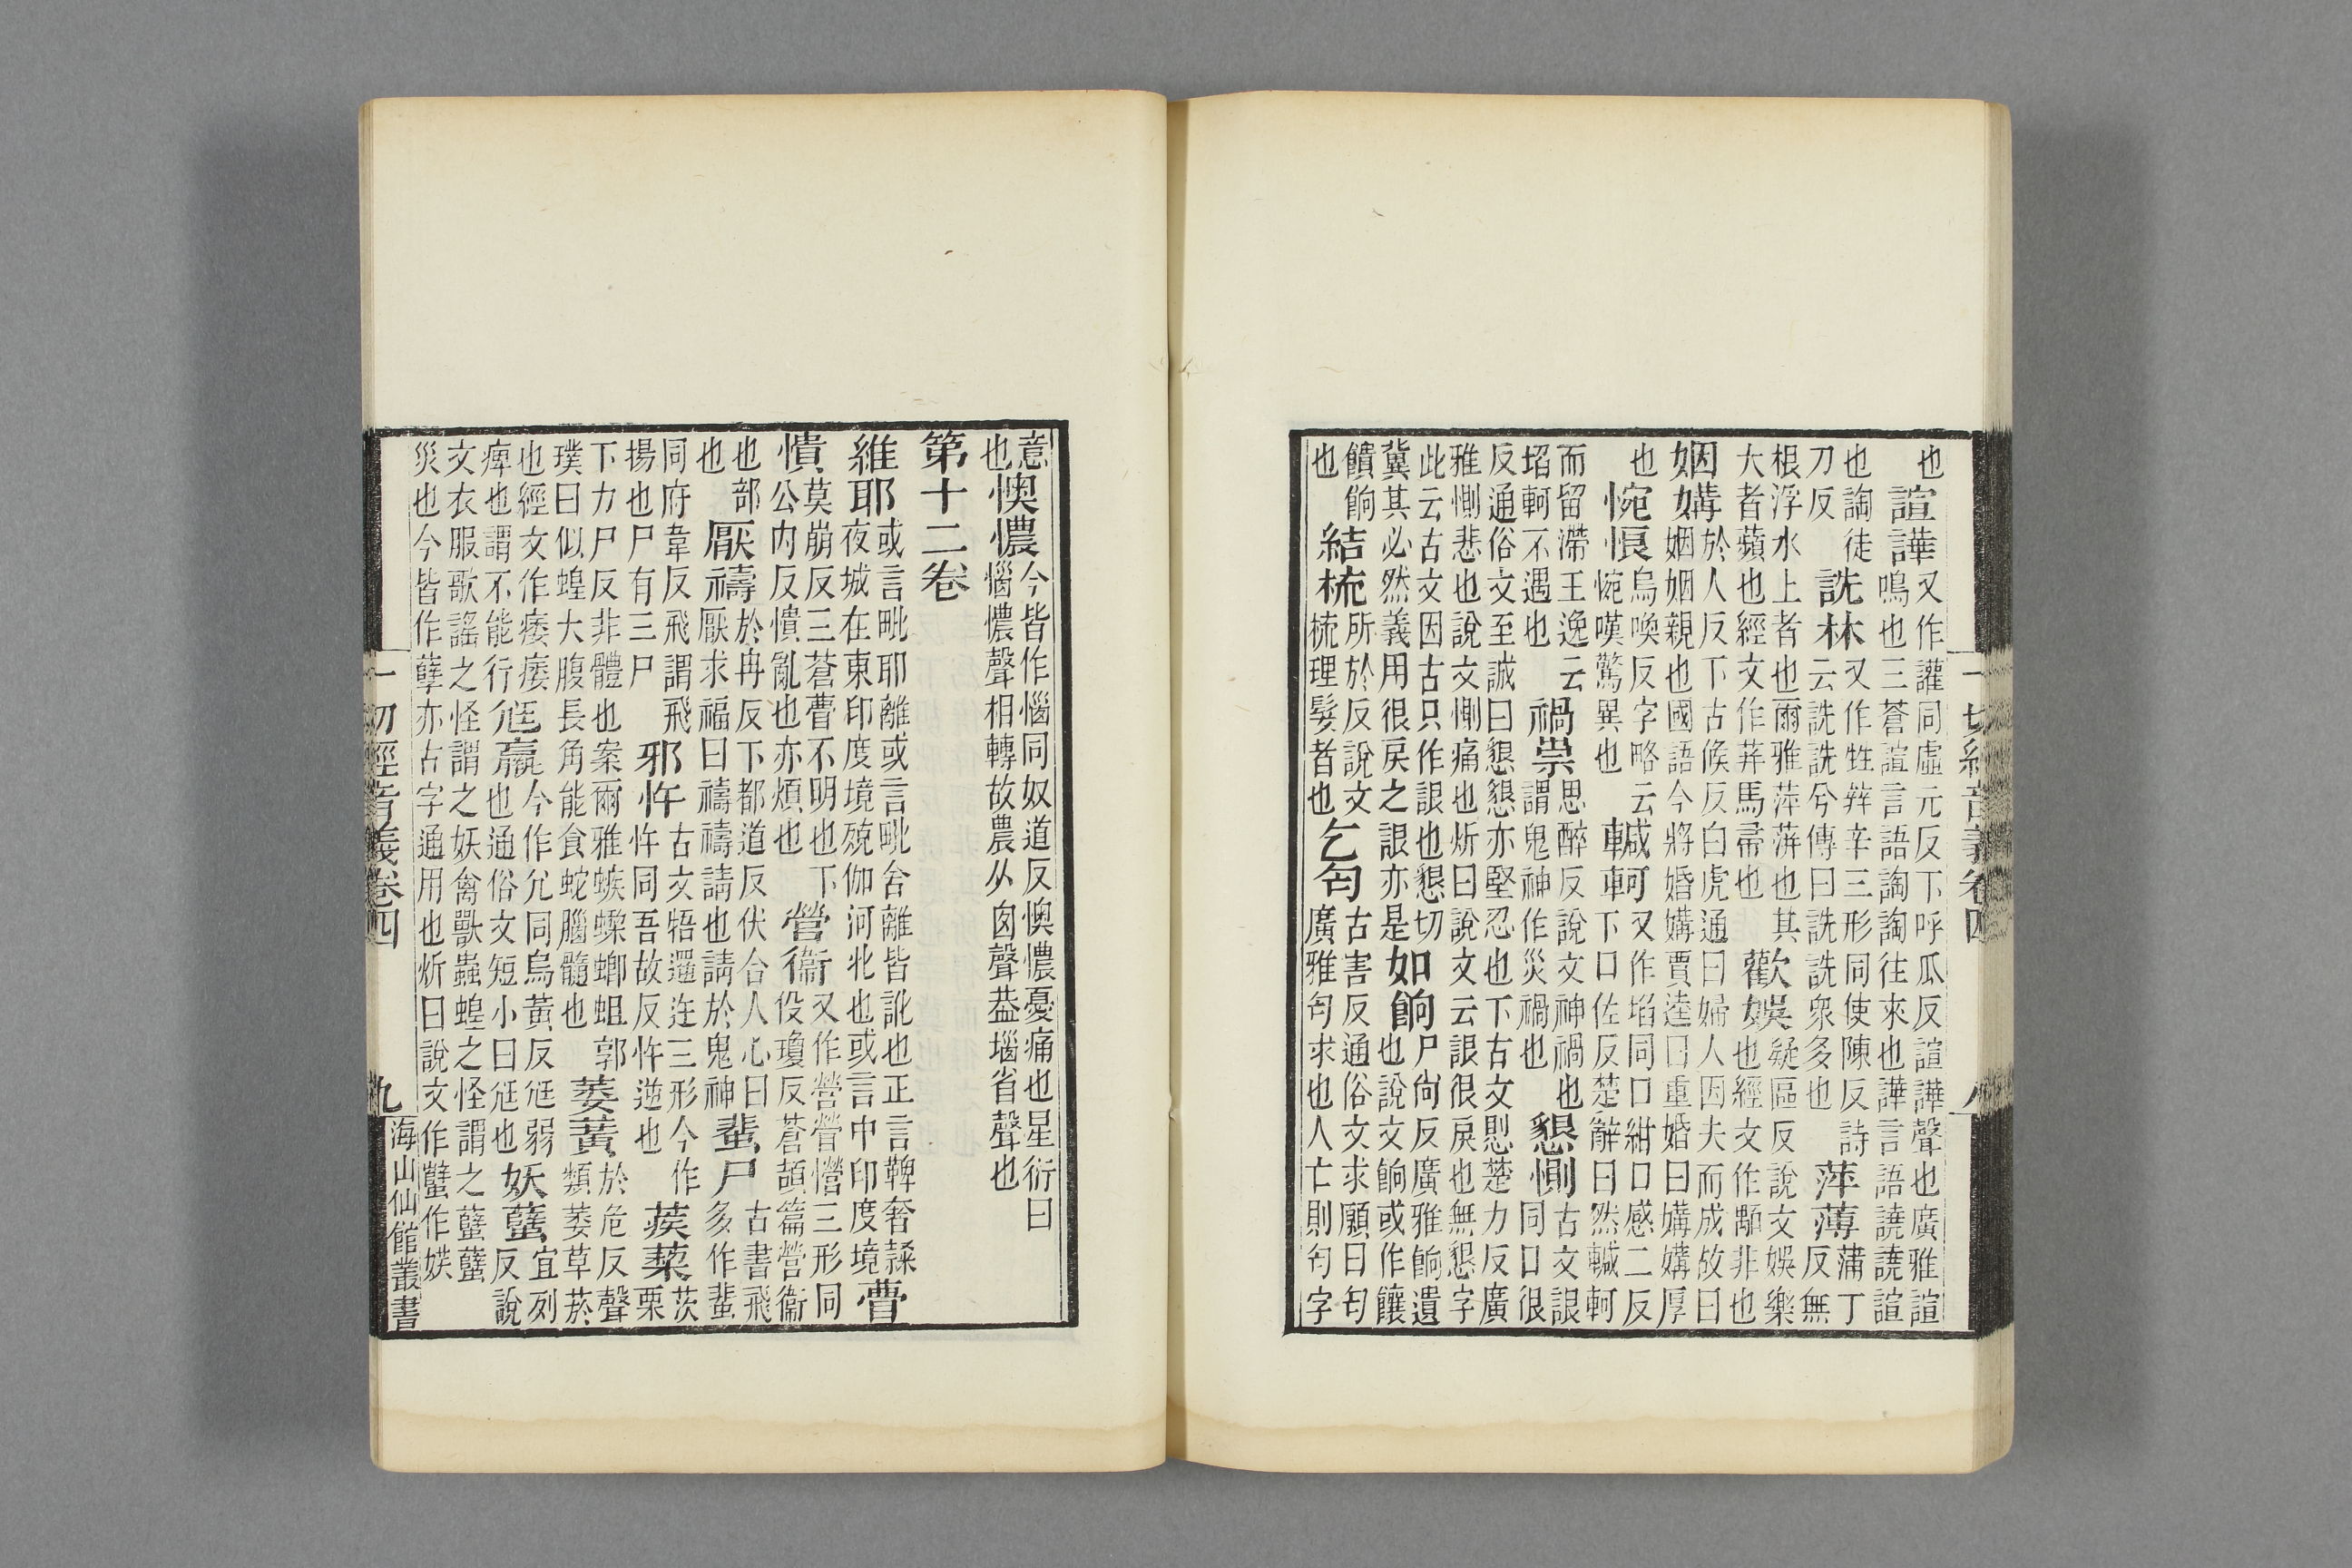 一切經音義卷四
八
也諠譁又作讙同虛元反下呼瓜反諠譁聲也廣雅諠
鳴也三蒼諠言語䛬䛬往來也譁言語譊譊諠
也䛬徒刀反詵林又作甡辛三形同使陳反詩
云詵詵兮傳曰詵詵衆多也萍薄蒲丁反無
根浮水上者也爾雅萍蓱也其
大者蘋也經文作荓馬帚也歡娛疑區反說文娛樂
也經文作非也
姻媾於人反下古候反白虎通曰婦人因夫而成故曰
姻姻親也國語今將婚媾賈逵曰重婚曰媾媾厚
也惋恨烏喚反字略云
惋嘆驚異也轗軻又作埳同口紺口感二反
下口佐反楚辭曰然轗軻
而留滯王逸云
埳軻不遇也禍祟思醉反說文神禍也
謂鬼神作災禍也懇惻古文詪
同口很
反通俗文至誠曰懇懇亦堅忍也下古文恖楚力反廣
雅惻悲也說文惻痛也炘曰說文云詪很戾也無懇字
此云古文因古只作詪也懇切
冀其必然義用很戾之詪亦是如餉尸尙反廣雅餉遺
也說文餉或作饟
饋餉
也結梳所於反說文
梳理髮者也乞匄古害反通俗文求願曰匄
廣雅匄求也人亡則匄字
意
也懊憹今皆作惱同奴道反懊憹憂痛也星衍曰
惱憹聲相轉故農从囟聲葢省聲也
第十二卷
維耶或言毗耶離或言毗舍離皆訛也正言鞞奢隸
夜城在東印度境殑伽河北也或言中印度境瞢
憒莫崩反三蒼瞢不明也下
公内反憒亂也亦煩也營衞又作三形同
役瓊反蒼頡篇營衞
也部
也厭禱於冉反下都道反伏合人心曰
厭求福曰禱禱請也請於鬼神蜚尸古書飛
多作蜚
同府韋反飛謂飛
揚也尸有三尸邪忤古文牾遻迕三形今作
忤同吾故反忤逆也蒺蔾茨栗
下力尸反非體也案爾雅蝍蛆郭
璞曰似蝗大腹長角能食蛇腦髓也萎黃於危反聲
類萎草菸
也經文作痿痿
痺也謂不能行尫羸今作尣同烏黃反尫弱
也通俗文短小曰尫也妖蠥宜列
反說
文衣服歌謠之怪謂之妖禽獸蟲蝗之怪謂之蠥蠥
災也今皆作孽亦古字通用也炘曰說文作蠥作媄
一切經音義卷四
九
海山仙館叢書